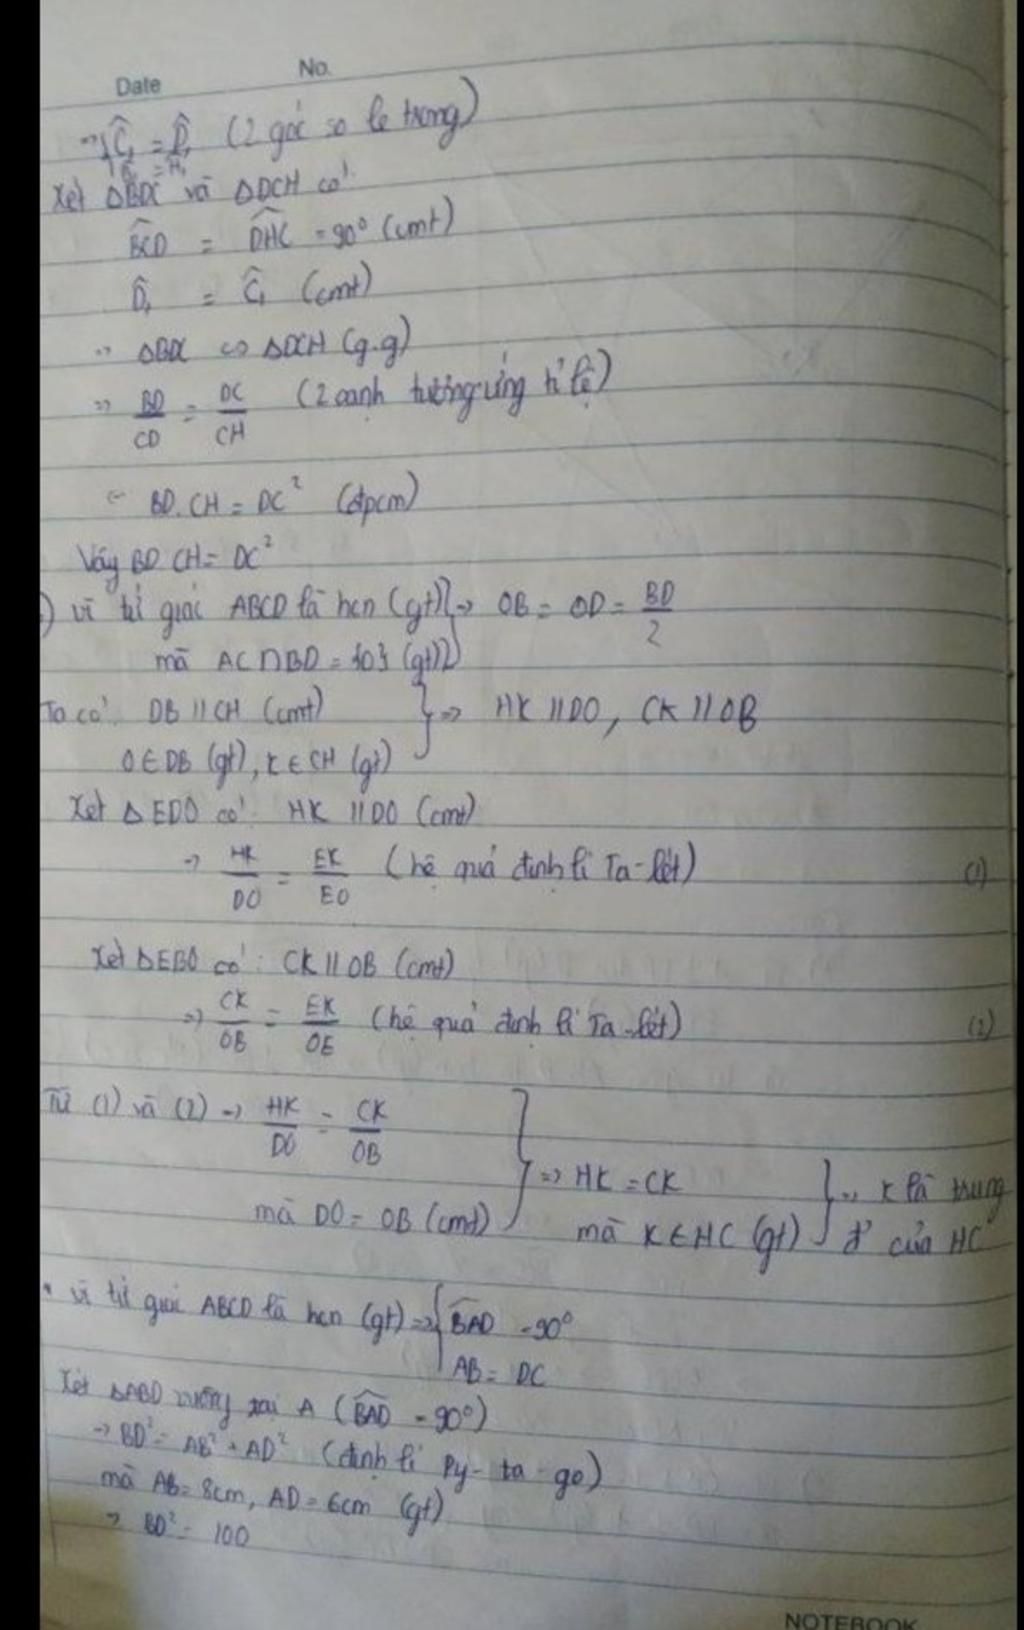 Date No.
⇒ { Ĉ₁ = D̂₁ (2 góc so le trong)
= H₁
Xét ΔBDC và ΔDCH có:
BCD = DHC = 90° (cmt)
D̂₁ = Ĉ₁ (cmt)
⇒ ΔBDC ∽ ΔDCH (g.g)
⇒ BD/CD = DC/CH (2 cạnh tương ứng tỉ lệ)
⇒ BD.CH = DC² (đpcm)
Vậy BD CH = DC²
) Vì tứ giác ABCD là hcn (gt) } ⇒ OB = OD = BD/2
mà AC∩BD = {O} (gt)
Ta có: DB // CH (cmt) } ⇒ HK // DO, CK // OB
O ∈ DB (gt), K ∈ CH (gt)
Xét ΔEDO có: HK // DO (cmt)
⇒ HK/DO = EK/EO (hệ quả định lí Ta-lét) (1)
Xét ΔEBO có: CK // OB (cmt)
⇒ CK/OB = EK/OE (hệ quả định lí Ta-lét) (2)
Từ (1) và (2) ⇒ HK/DO = CK/OB
mà DO = OB (cmt) } ⇒ HK = CK
mà K ∈ HC (gt) } ⇒ K là trung
đ' của HC
• Vì tứ giác ABCD là hcn (gt) ⇒ { BAD = 90°
AB = DC
Xét ΔABD vuông tại A (BAD = 90°)
⇒ BD² = AB² + AD² (định lí Py-ta-go)
mà AB = 8cm, AD = 6cm (gt)
⇒ BD² = 100
NOTEBOOK